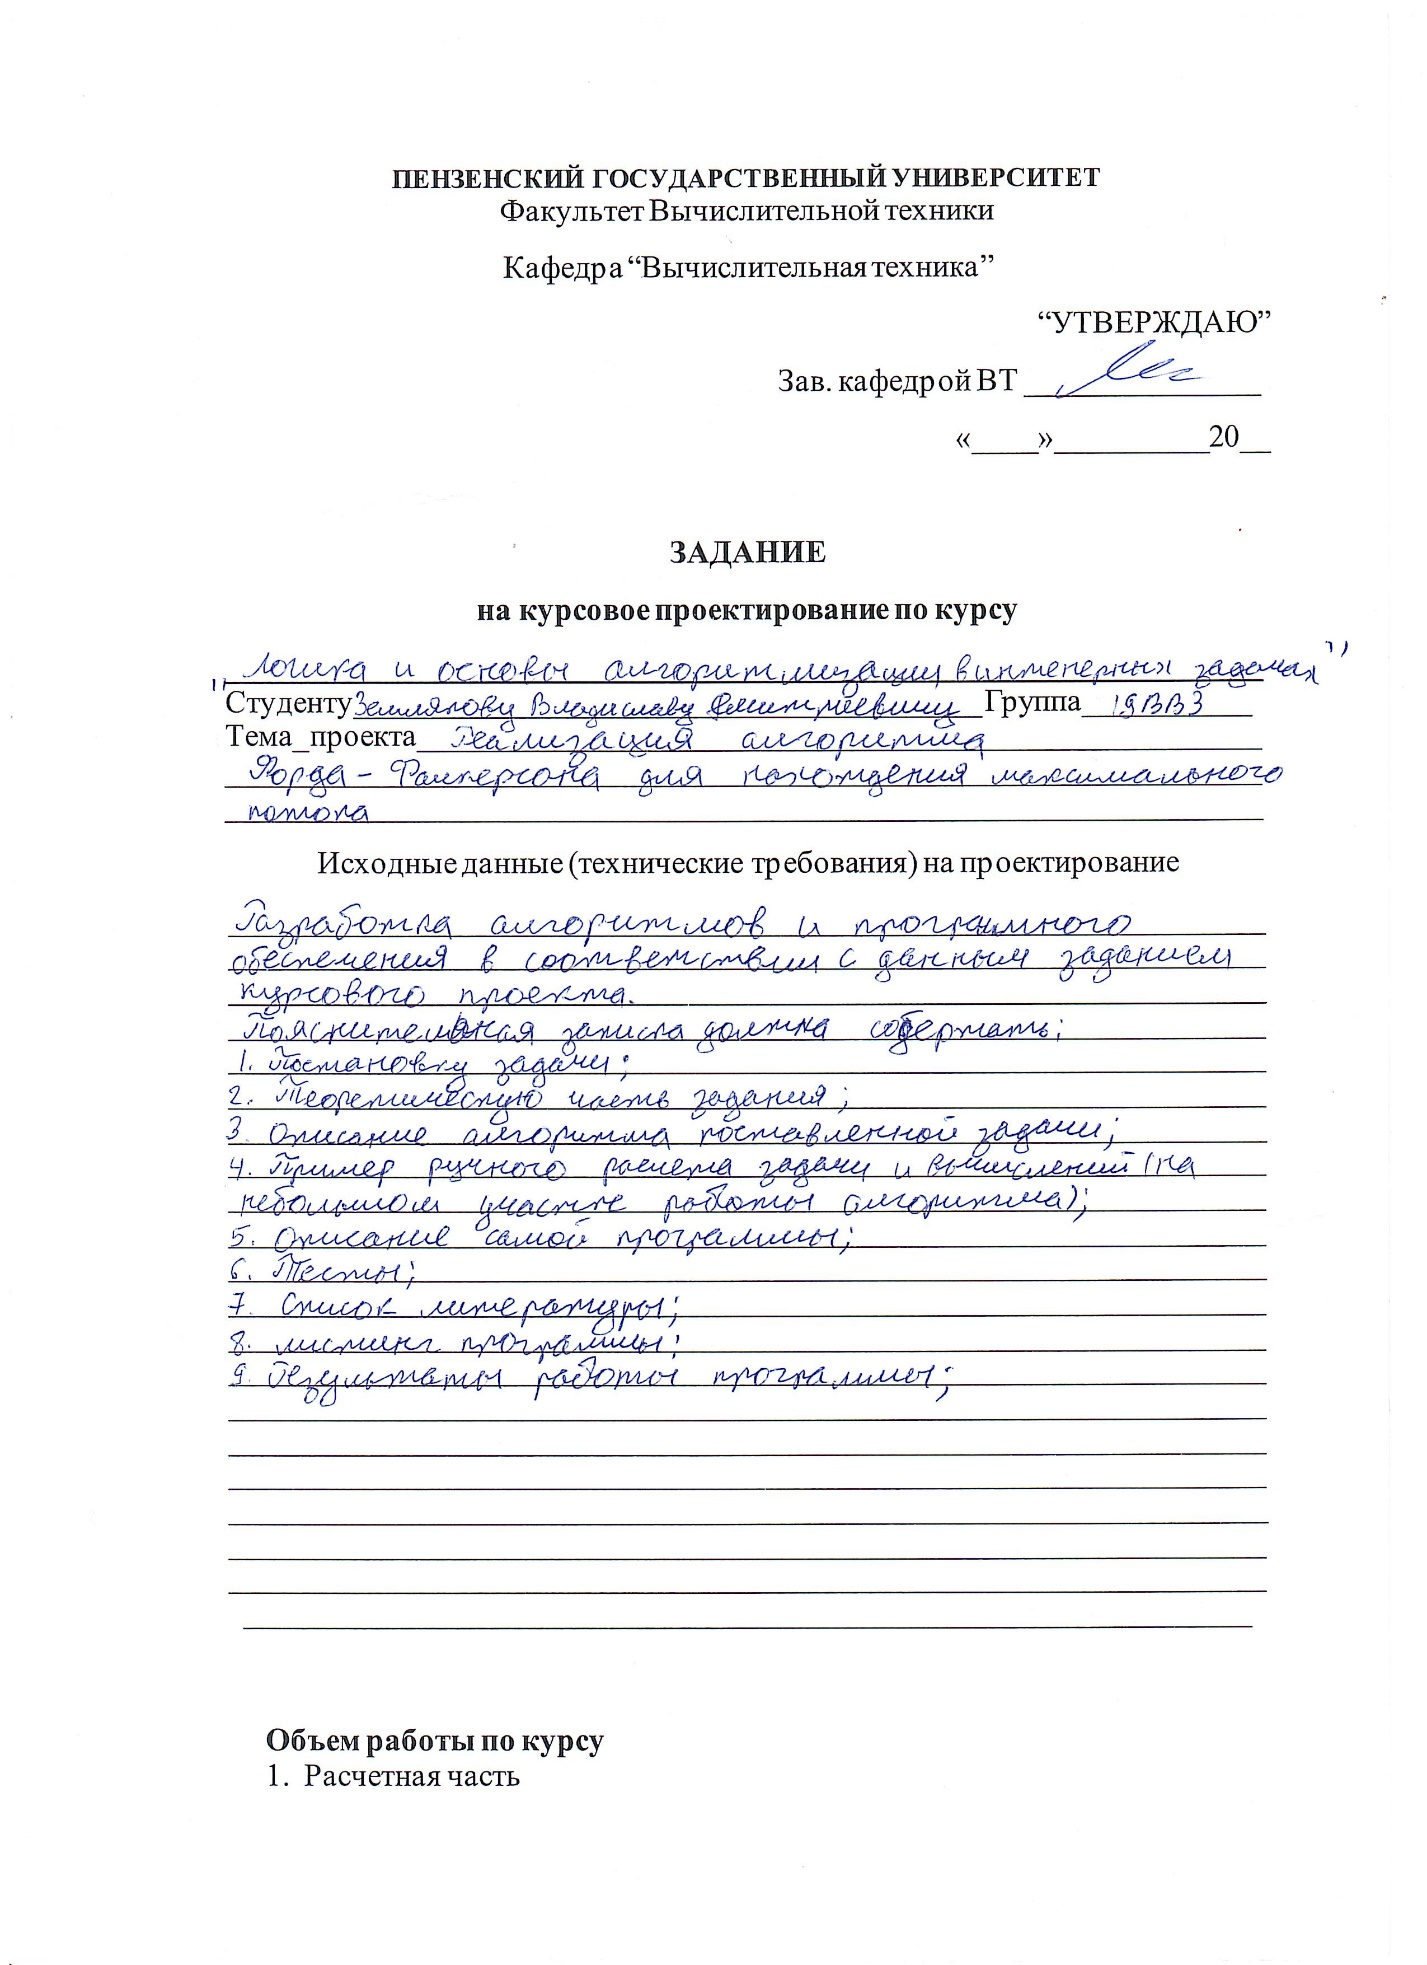 ПЕНЗЕНСКИЙ ГОСУДАРСТВЕННЫЙ УНИВЕРСИТЕТ
Факультет Вычислительной техники
Кафедра “Вычислительная техника”
“УТВЕРЖДАЮ”
Зав. кафедрой ВТ ______________
«____»__________20__
ЗАДАНИЕ
на курсовое проектирование по курсу
"Логика и основы алгоритмизации в инженерных задачах"
Студенту Землякову Владиславу Дмитриевичу Группа 19ВВ3
Тема_проекта Реализация алгоритма
Форда-Фалкерсона для нахождения максимального
потока
Исходные данные (технические требования) на проектирование
Разработка алгоритмов и программного
обеспечения в соответствии с данным заданием
курсового проекта.
Пояснительная записка должна содержать:
1. Постановку задачи;
2. Теоретическую часть задания;
3. Описание алгоритма поставленной задачи;
4. Пример ручного расчета задачи и вычислений (на
небольшом участке работы алгоритма);
5. Описание самой программы;
6. Тесты;
7. Список литературы;
8. Листинг программы;
9. Результаты работы программы;
Объем работы по курсу
1. Расчетная часть